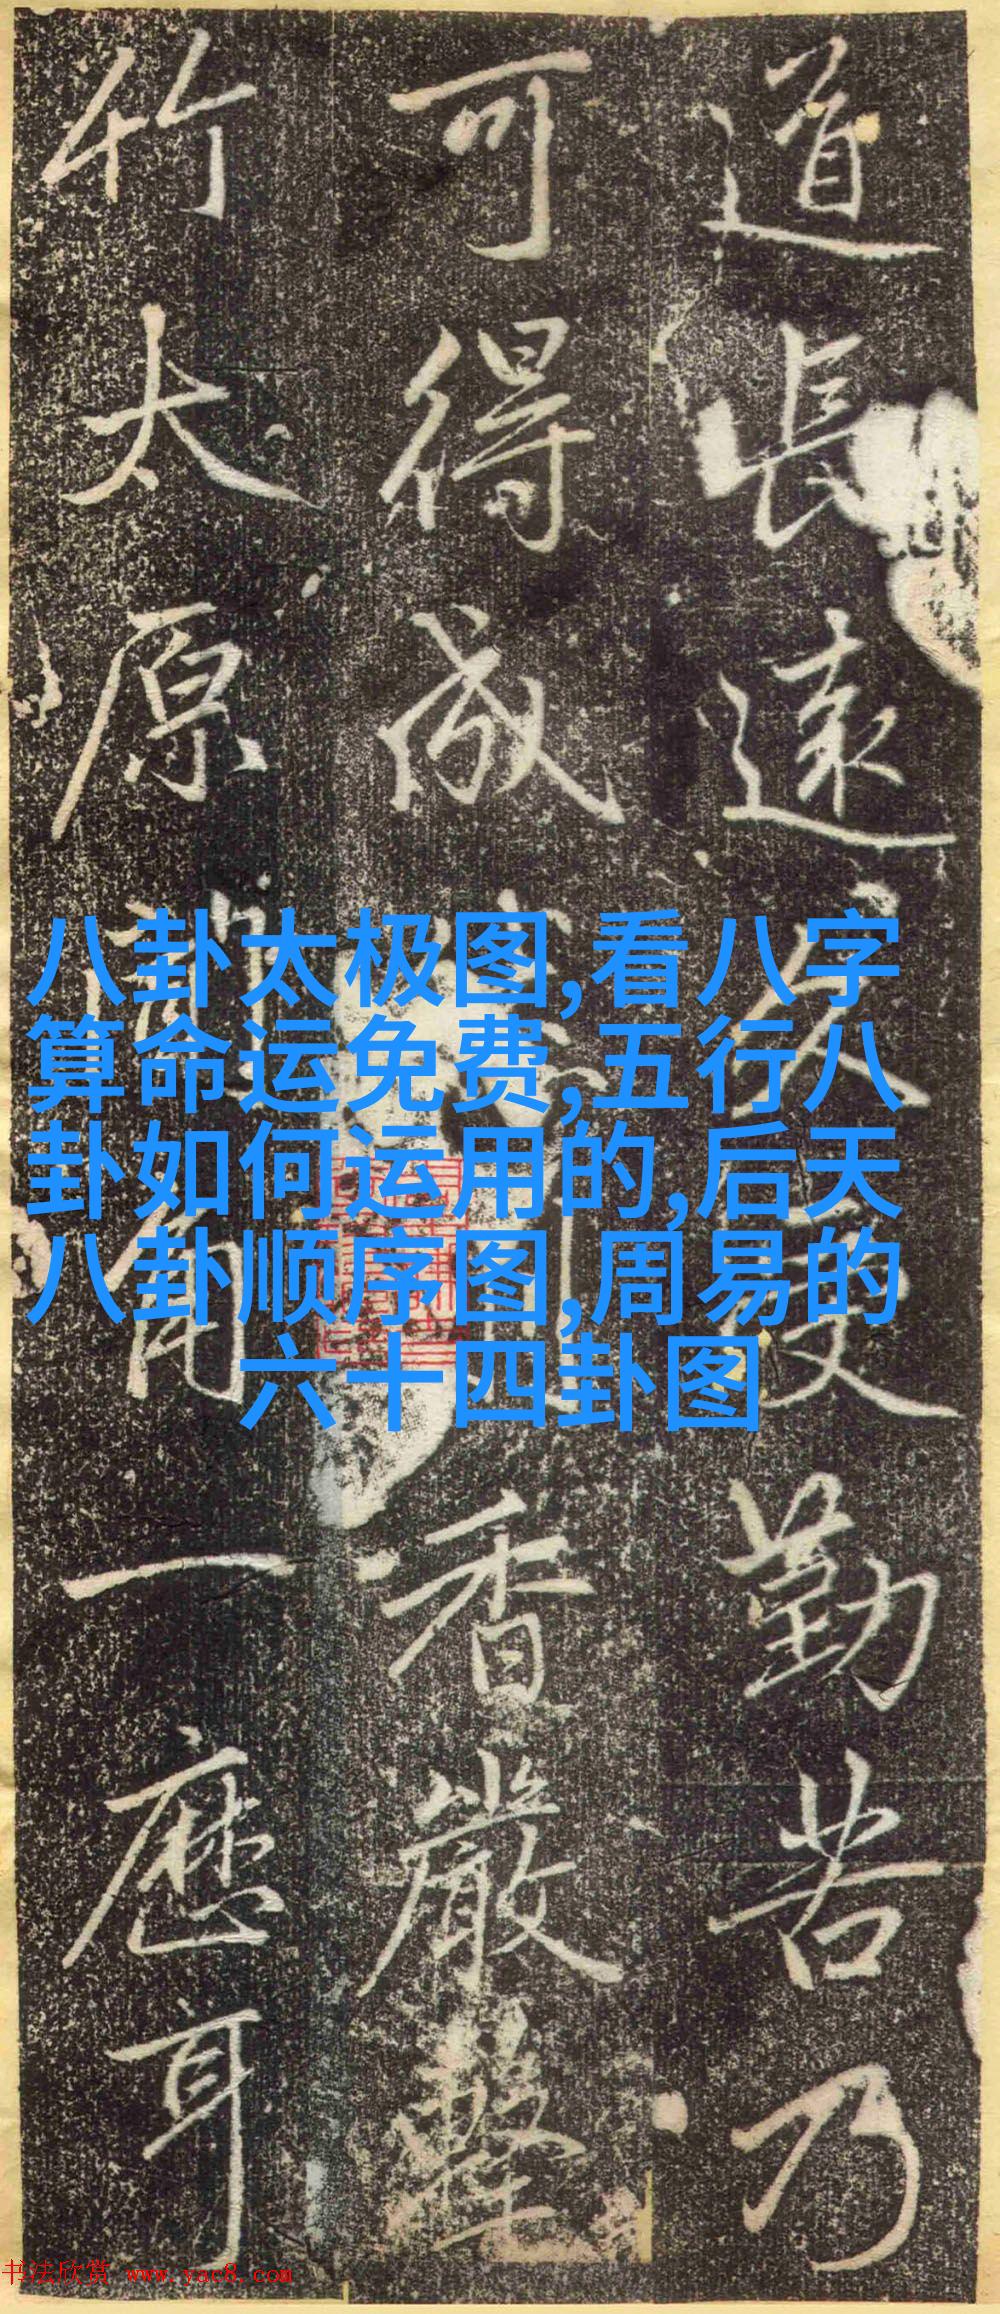 道長遠久受勤苦乃
可得成佛香嚴擊
竹太原角一應耳
八卦太极图,看八字
算命运免费,五行八
卦如何运用的,后天
八卦顺序图,周易的
六十四卦图
书法欣赏 www.yac8.com